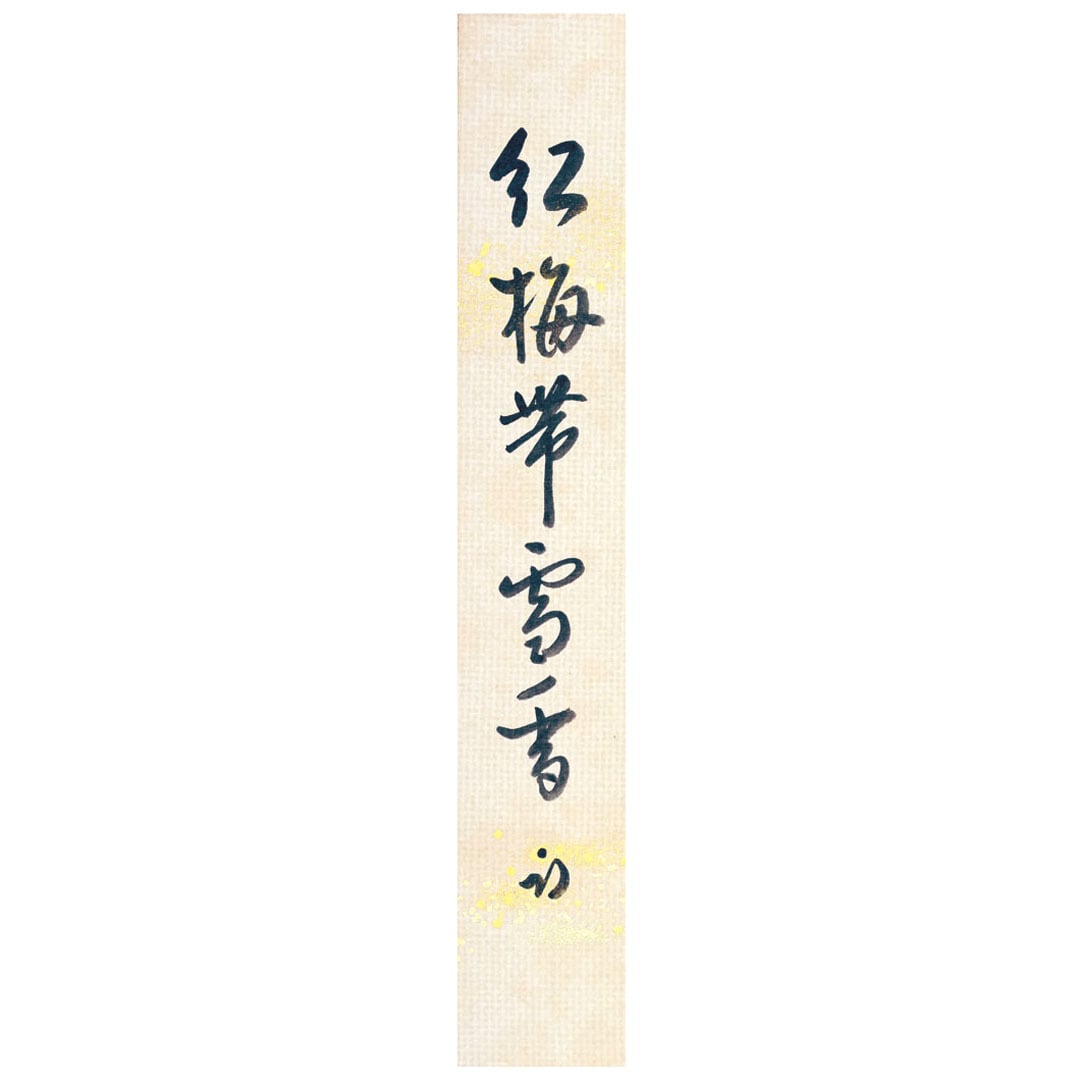 紅梅帯雪香